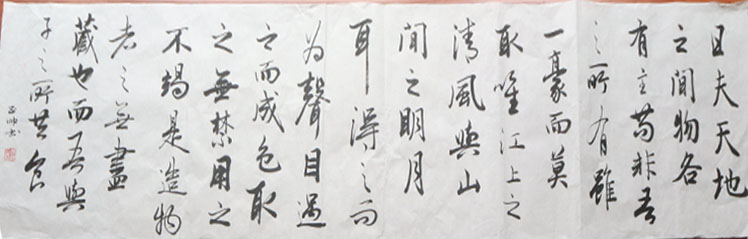 且夫天地
之間物各
有主苟非吾
之所有雖
一豪而莫
取唯江上之
清風與山
間之明月
耳得之而
为聲目遇
之而成色取
之無禁用之
不竭是造物
者之無盡
藏也而吾與
子之所共食